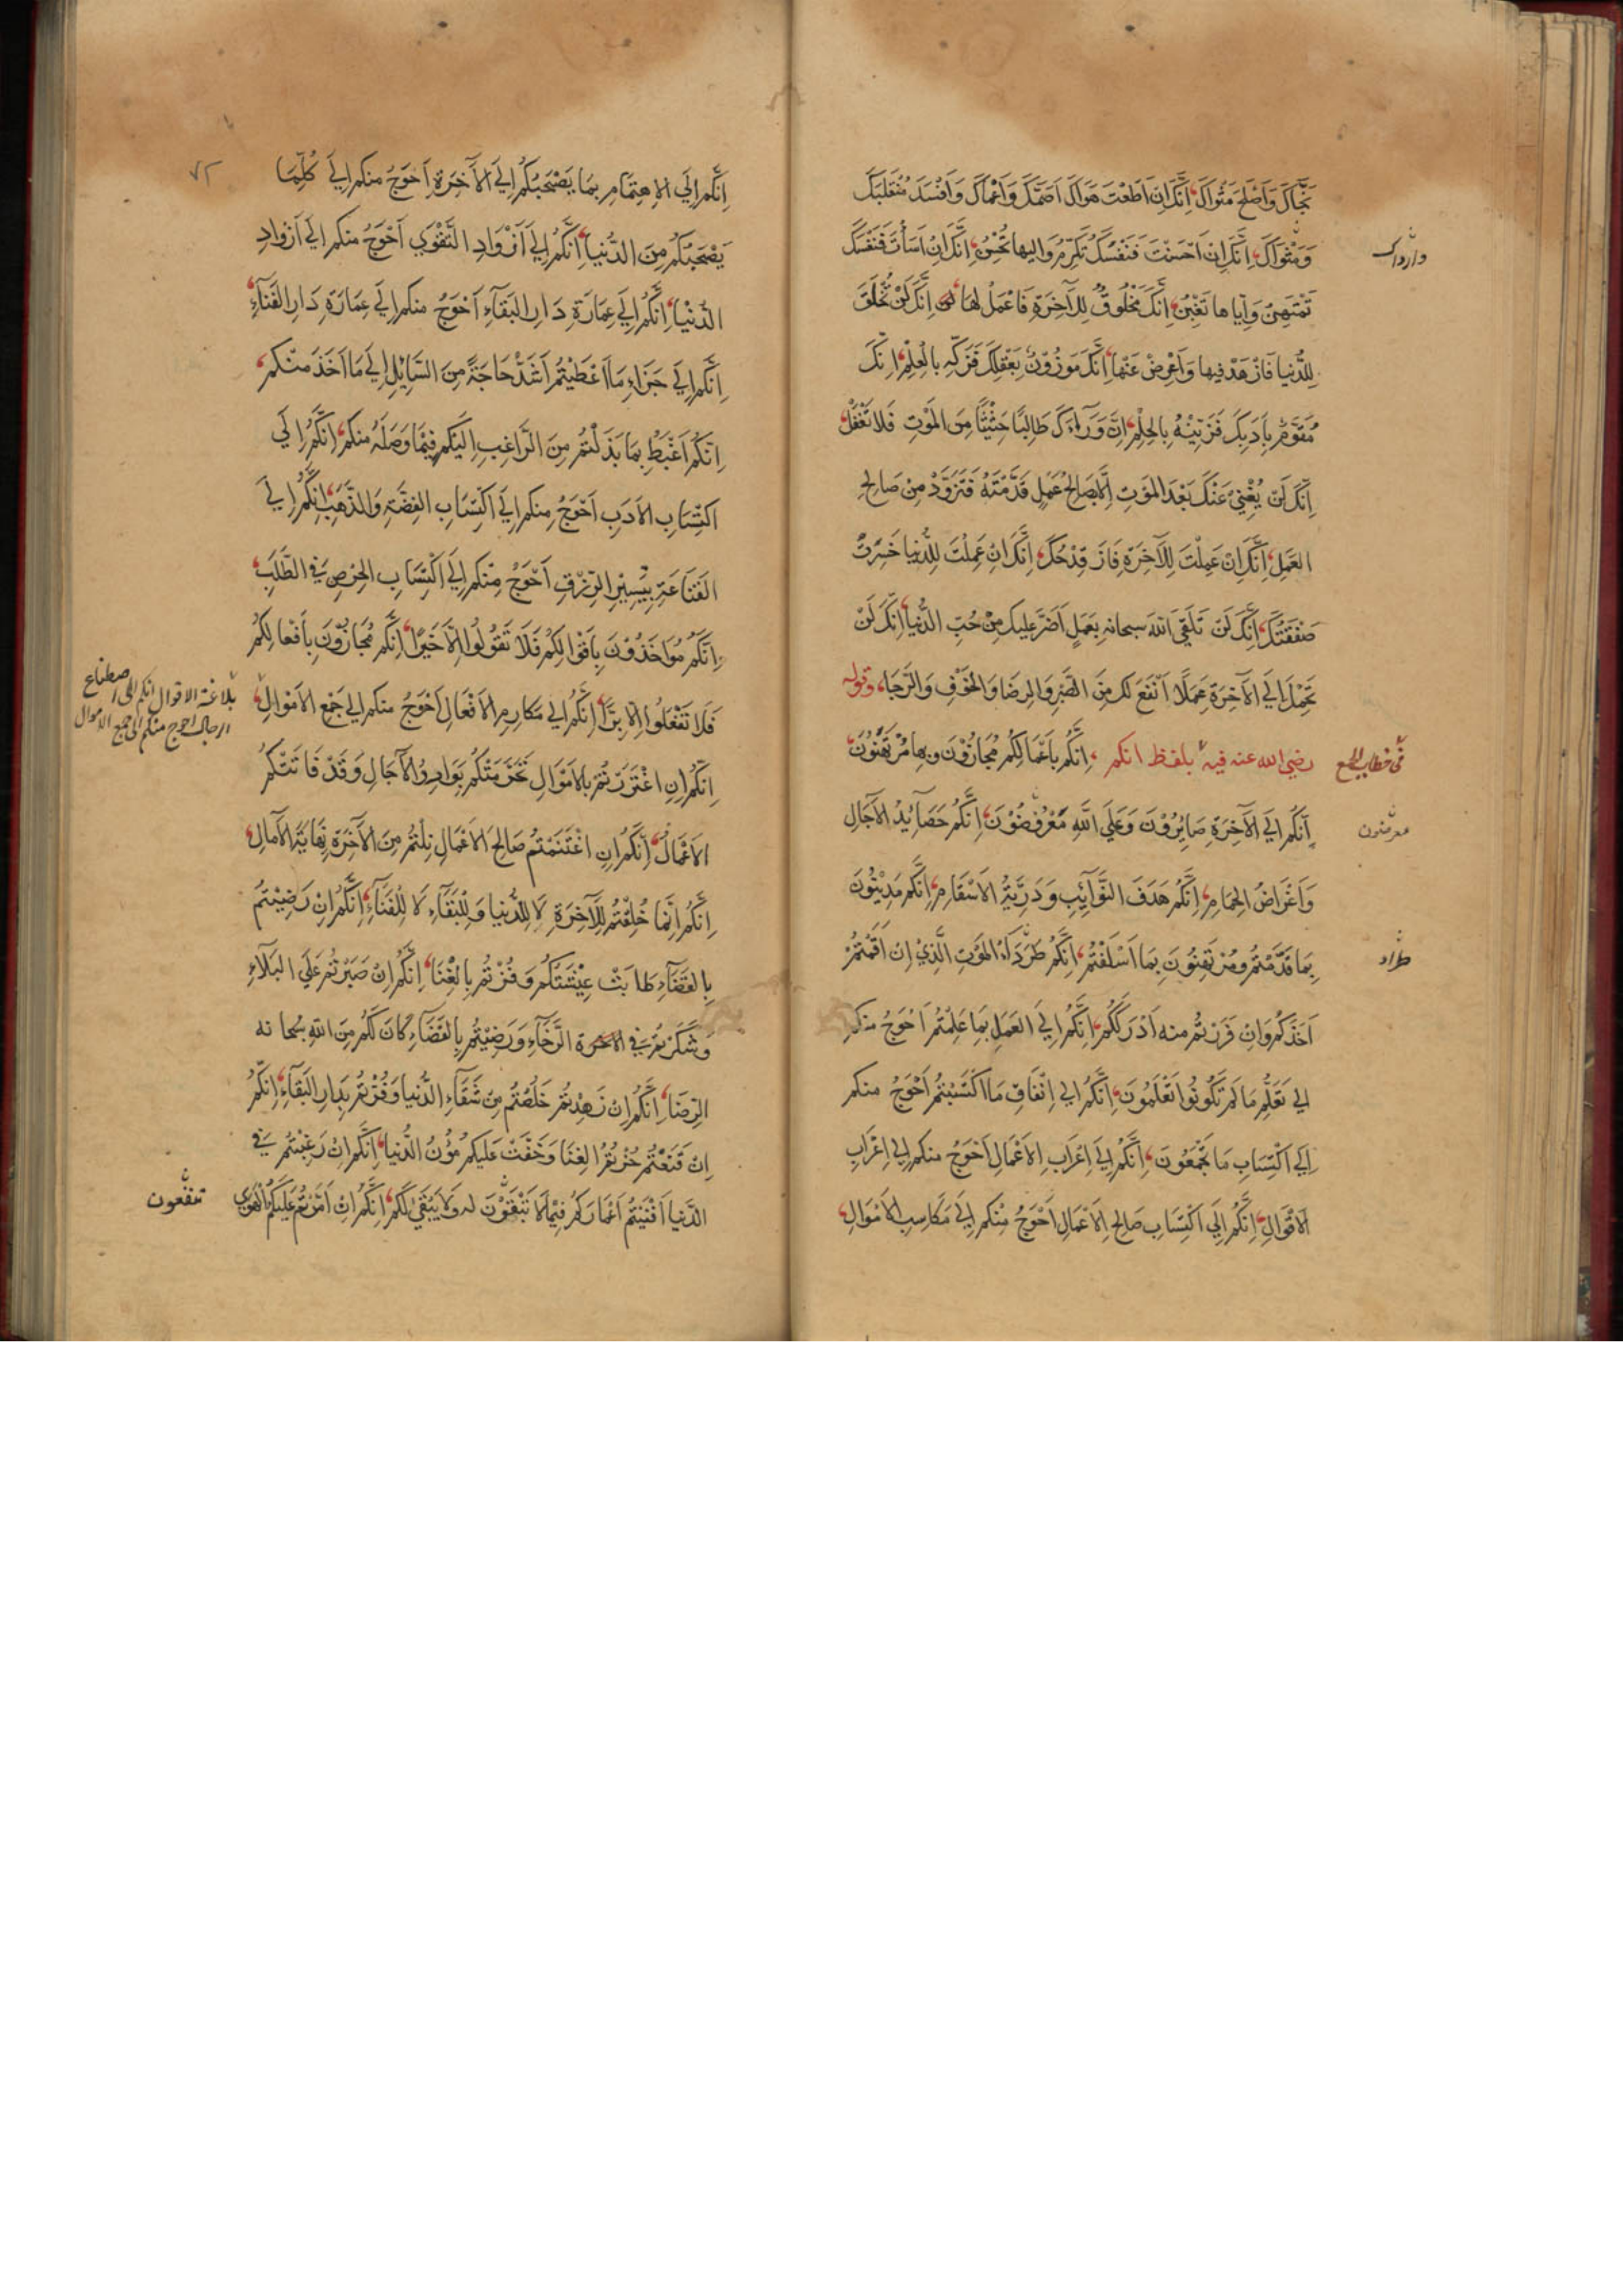 نَجَّاكَ وَاَصْلَحَ مَثْوَاكَ، اِنَّكَ اِنْ اَطَعْتَ هَوَاكَ اَصَمَّكَ وَاَعْمَاكَ وَاَفْسَدَ مُنْقَلَبَكَ
وَمَثْوَاكَ، اِنَّكَ اِنْ اَحْسَنْتَ فَنَفْسَكَ تُكَرِّمُ وَاليها تُحْسِنُ، اِنَّكَ اِنْ اَسَأْتَ فَنَفْسَكَ
وارداك
تَمْتَهِنُ وَاِيّاها تَغْبِنُ، اِنَّكَ مَخْلُوقٌ لِلآخِرَةِ فَاعْمَلْ لَهَا اِنَّكَ لَنْ تُخْلَقَ
لِلدُّنيا فَازْهَدْ فيها وَاَعْرِضْ عَنْهَا، اِنَّكَ مَوْزُوْنٌ بِعَقْلِكَ فَزَكِّهِ بِالْعِلْمِ، اِنَّكَ
مُقَوَّمٌ بِاَدَبِكَ فَزَيِّنْهُ بِالحِلْمِ، اِنَّ وَرَآءَكَ طَالِبًا حَثِيْثًا مِنَ المَوْتِ فَلَا تَغْفُلْ
اِنَّكَ لَنْ يُغْنِيَ عَنْكَ بَعْدَ المَوْتِ اِلَّا صَالِحُ عَمَلٍ قَدَّمْتَهُ فَتَزَوَّدْ مِنْ صَالِحِ
العَمَلِ، اِنَّكَ اِنْ عَمِلْتَ لِلآخِرَةِ فَازَ قِدْحُكَ، اِنَّكَ اِنْ عَمِلْتَ لِلدُّنيا خَسِرَتْ
صَفْقَتُكَ، اِنَّكَ لَنْ تَلْقَى اللهَ سبحانه بِعَمَلٍ اَضَرَّ عليك مِنْ حُبِّ الدُّنْيَا، اِنَّكَ لَنْ
تَحْمِلَ اِلَى الآخِرَةِ عَمَلًا اَنْفَعَ لك مِنَ الصَّبْرِ وَالرِضَا وَالخَوْفِ وَالرَّجَا، وقوله
رضي الله عنه فيه بلفظ انكم، اِنَّكُمْ بِاَعْمَالِكُمْ مُجَازَوْنَ وبِهَا مُرْتَهَنُوْنَ
في خطاب الجمع
اِنَّكُمْ اِلَى الآخِرَةِ صَايِرُوْنَ وَعَلَى اللهِ مَعْرُوْضُوْنَ، اِنَّكُمْ حَصَآيِدُ الآجَالِ
معرضون
وَاَغْرَاضُ الحِمَامِ، اِنَّكُمْ هَدَفُ النَّوَآيِبِ وَدَرِيَّةُ الاَسْقَامِ، اِنَّكُمْ مَدِيْنُوْنَ
بِمَا قَدَّمْتُمْ ومُرْتَهِنُوْنَ بِمَا اَسْلَفْتُمْ، اِنَّكُمْ طَرَدَآءُ المَوْتِ الَّذِيْ اِنْ اَقَمْتُمْ
طراد
اَخَذَكُمْ وَاِنْ فَرَرْتُمْ منه اَدْرَكَكُمْ، اِنَّكُمْ اِلَى العَمَلِ بِمَا عَلِمْتُمْ اَحْوَجُ منكم
اِلى تَعَلُّمِ مَا لَمْ تَكُوْنُوا تَعْلَمُوْنَ، اِنَّكُمْ اِلى اِنْفَاقِ مَا اكْتَسَبْتُمْ اَحْوَجُ منكم
اِلى اكْتِسَابِ مَا تَجْمَعُوْنَ، اِنَّكُمْ اِلَى اِعْرَابِ الاَعْمَالِ اَحْوَجُ منكم اِلى اِعْرَابِ
الاَقْوَالِ، اِنَّكُمْ اِلَى اكْتِسَابِ صَالِحِ الاَعْمَالِ اَحْوَجُ مِنْكم اِلى مَكَاسِبِ الاَمْوَالِ،
٧٢
اِنَّكُمْ اِلَى الاِهتِمَامِ بِمَا يَصْحَبُكُمْ اِلَى الآخِرَةِ اَحْوَجُ منكم اِلى كُلِّمَا
يَصْحَبُكُمْ مِنَ الدُّنْيَا، اِنَّكُمْ اِلى اَزْوَادِ التَّقْوَى اَحْوَجُ منكم اِلى اَزْوَادِ
الدُّنْيَا، اِنَّكُمْ اِلى عِمَارَةِ دَارِ البَقَآءِ اَحْوَجُ منكم اِلى عِمَارَةِ دَارِ الفَنَآءِ،
اِنَّكُمْ اِلى جَزَاءِ مَا اَعْطَيْتُمْ اَشَدُّ حَاجَةً مِنَ السَّايِلِ اِلى مَا اَخَذَ منكم،
اِنَّكُمْ اَغْبَطُ بِمَا بَذَلْتُمْ مِنَ الرَّاغِبِ اِلَيْكُمْ فِيْمَا وَصَلَهُ منكم، اِنَّكُمْ اِلى
اكْتِسَابِ الاَدَبِ اَحْوَجُ مِنكم اِلى اكْتِسَابِ الفِضَّةِ وَالذَّهَبِ، اِنَّكُمْ اِلى
القَنَاعَةِ بِيَسِيْرِ الرِّزْقِ اَحْوَجُ مِنْكم اِلى اكْتِسَابِ الحِرْصِ فِي الطَّلَبِ،
اِنَّكُمْ مُوَاخَذُوْنَ بِاَقْوَالِكُمْ فَلَا تَقُوْلُوا اِلَّا خَيْرًا، اِنَّكُمْ مُجَازُوْنَ بِاَفْعَالِكُمْ
فَلَا تَفْعَلُوا اِلَّا بِرًّا، اِنَّكُمْ اِلى مَكَارِمِ الاَفْعَالِ اَحْوَجُ منكم اِلى جَمْعِ الاَمْوَالِ،
بلاغة الاقوال انكم الى اصطناع
الرجال احوج منكم الى جمع الاموال
اِنَّكُمْ اِنِ اغْتَرَرْتُمْ بِالاَمْوَالِ تَخَرَّمَتْكُمْ بَوَادِرُ الآجَالِ وَقَدْ فَاتَتْكُمُ
الاَعْمَالُ، اِنَّكُمْ اِنِ اغْتَنَمْتُمْ صَالِحَ الاَعْمَالِ نِلْتُمْ مِنَ الآخِرَةِ نِهَايَةَ الآمَالِ،
اِنَّكُمْ اِنَّمَا خُلِقْتُمْ لِلآخِرَةِ لَا لِلدُّنيا وَلِلْبَقَآءِ لَا لِلْفَنَآءِ، اِنَّكُمْ اِنْ رَضِيْتُمْ
بِالقَضَآءِ طَابَتْ عِيْشَتُكُمْ وَفُزْتُمْ بِالغِنَا، اِنَّكُمْ اِنْ صَبَرْتُمْ عَلَى البَلَآءِ
وَشَكَرْتُمْ فِي الاخرة الرَّخَآءِ وَرَضِيْتُمْ بِالقَضَآءِ كَانَ لَكُمْ مِنَ اللهِ سُبْحانه
الرِضَا، اِنَّكُمْ اِنْ زَهِدْتُمْ خَلَصْتُمْ مِنْ شَقَآءِ الدُّنيا وَفُزْتُمْ بِدَارِ البَقَآءِ، اِنَّكُمْ
اِنْ قَنَعْتُمْ حُزْتُمُ الغِنَا وَخَفَّتْ عَلَيكم مُؤَنُ الدُّنيا، اِنَّكُمْ اِنْ رَغِبْتُمْ فِي
الدُّنيا اَفْنَيْتُمْ اَعْمَارَكُمْ فِيْمَا لَا تَبْقَوْنَ له وَلَا يَبْقَى لَكُمْ، اِنَّكُمْ اِنْ اَمَّرْتُمْ عَلَيْكُمُ الهَوَى
تنفعون